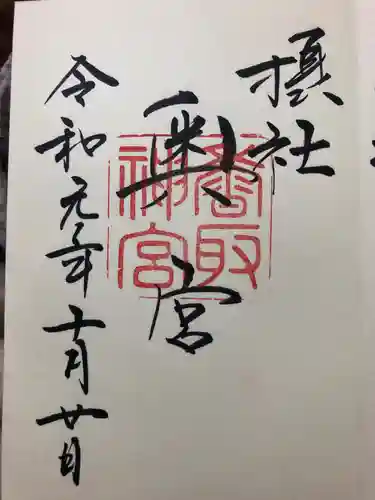 摂社
奥宮
香取神宮
令和元年十月廿日